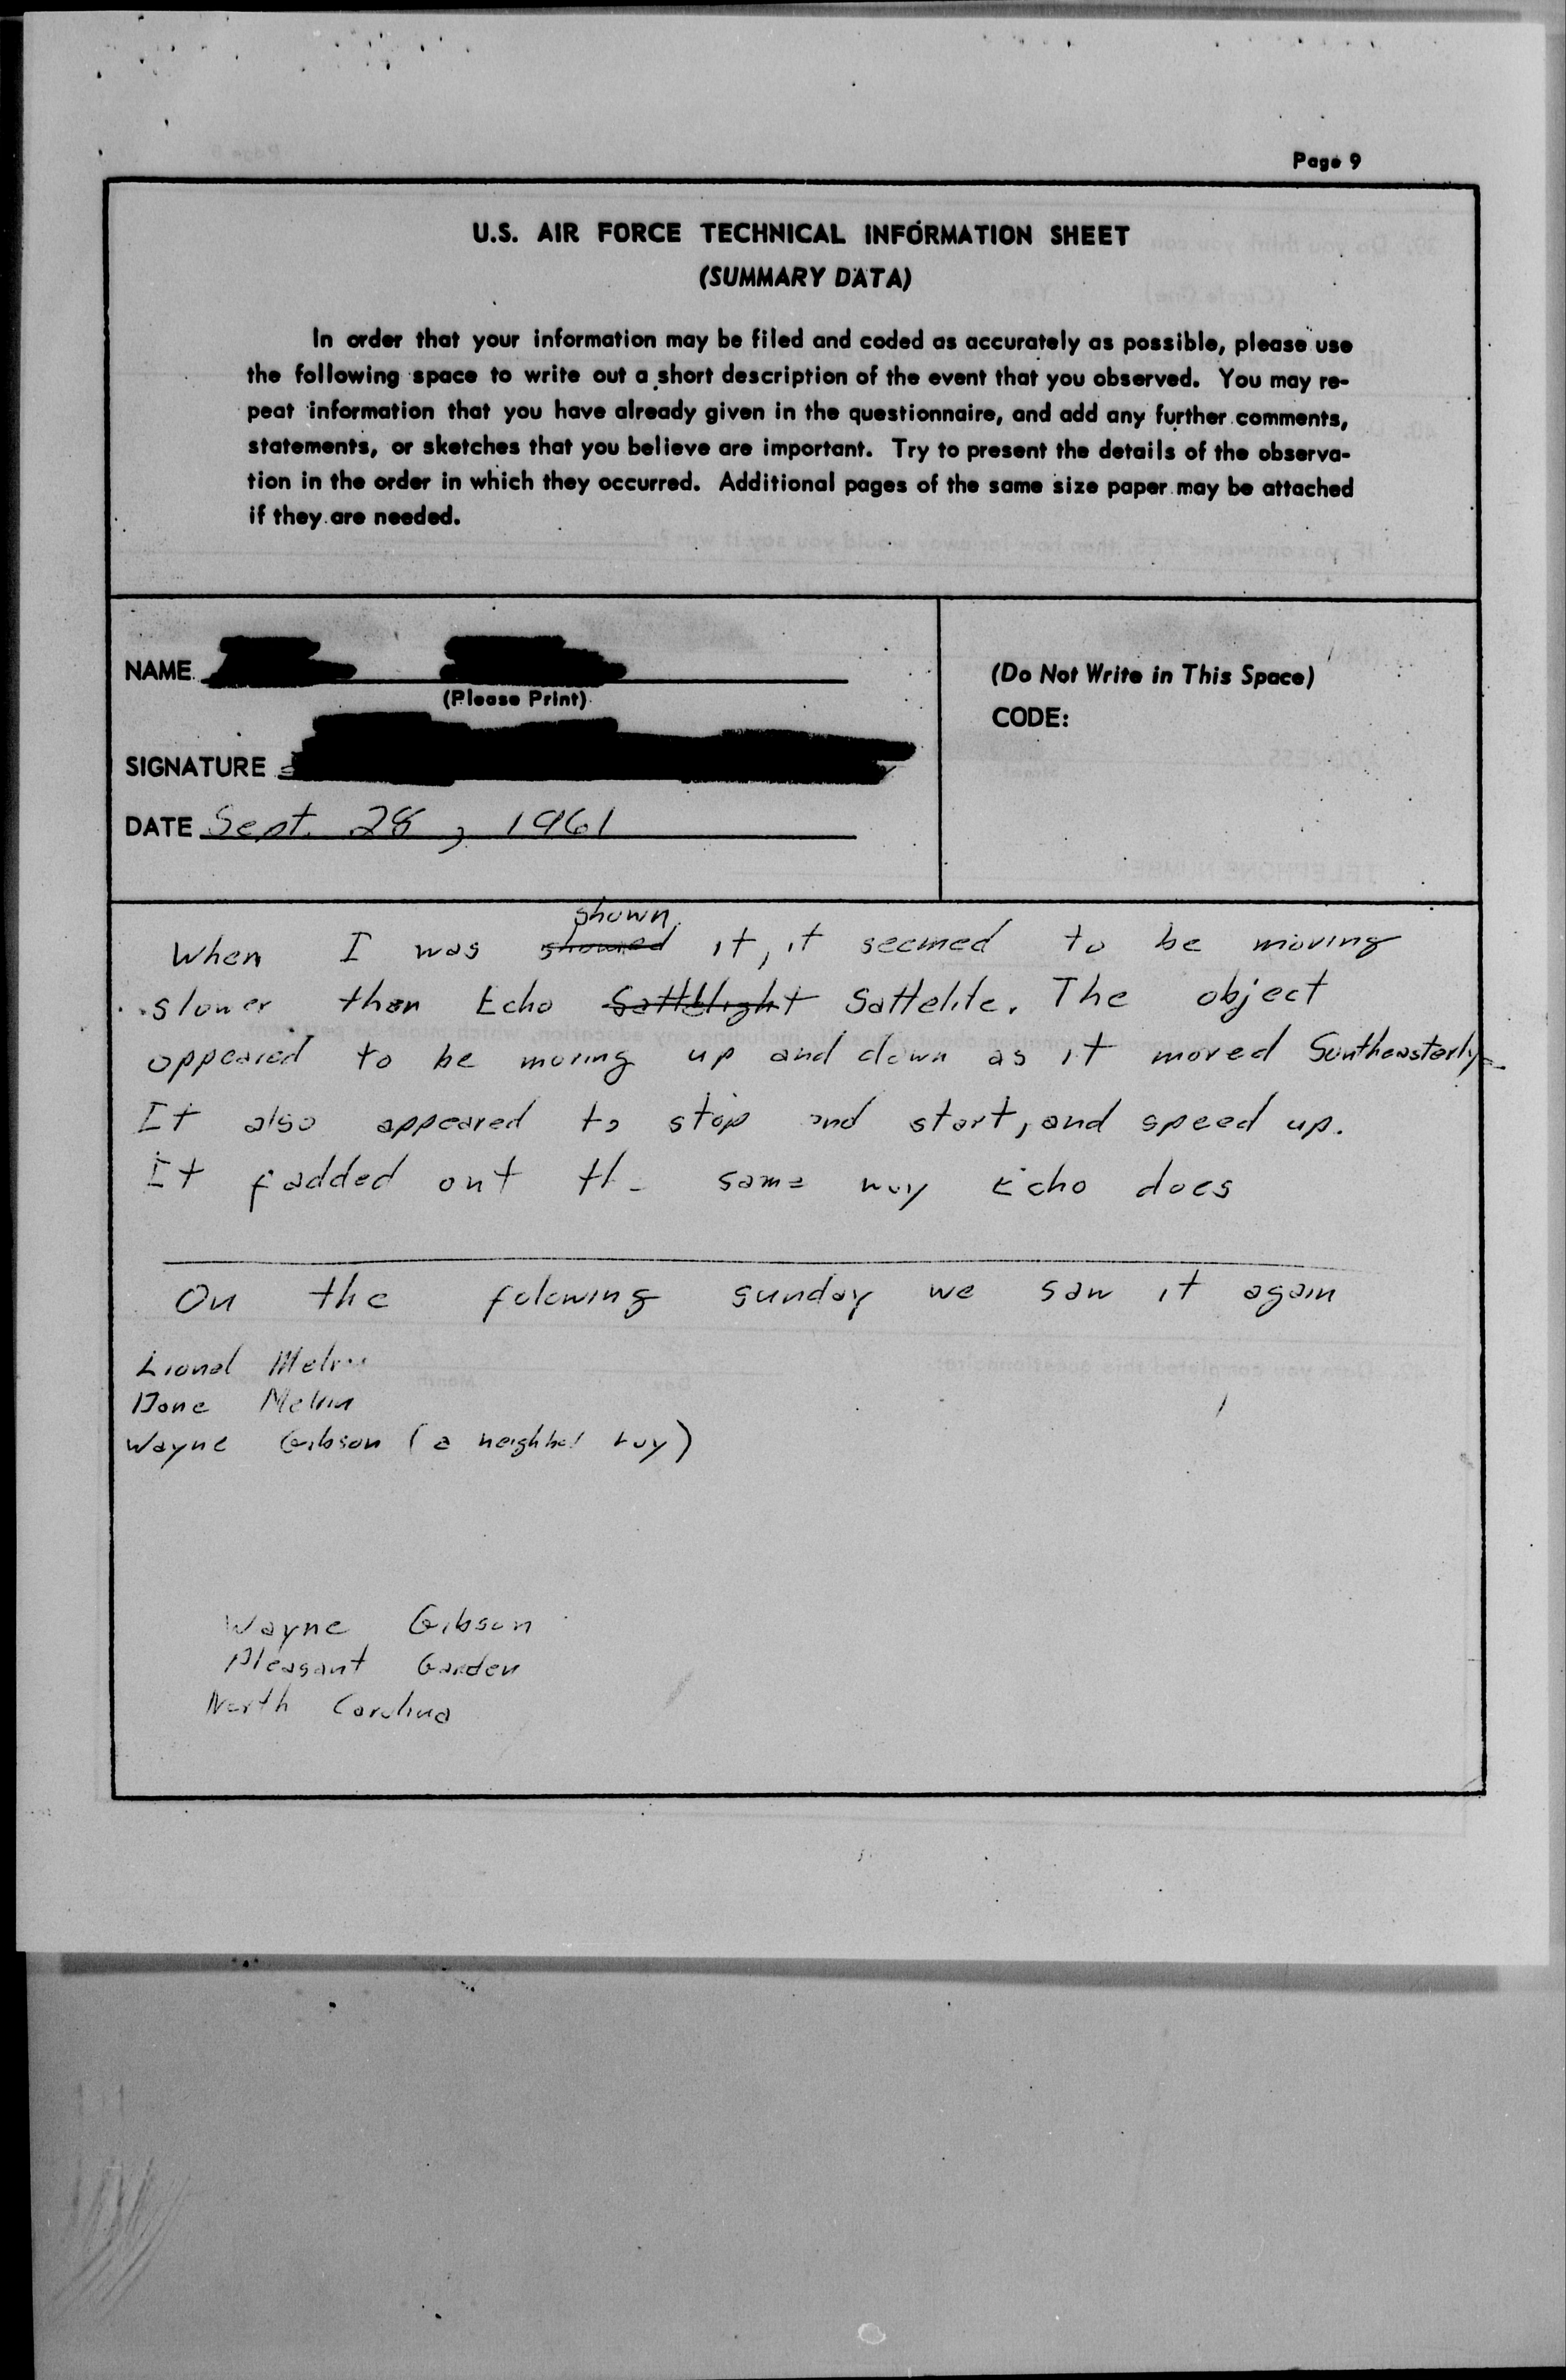 Page 9
U.S. AIR FORCE TECHNICAL INFORMATION SHEET
(SUMMARY DATA)
In order that your information may be filed and coded as accurately as possible, please use
the following space to write out a short description of the event that you observed. You may re-
peat information that you have already given in the questionnaire, and add any further comments,
statements, or sketches that you believe are important. Try to present the details of the observa-
tion in the order in which they occurred. Additional pages of the same size paper may be attached
if they are needed.
NAME
(Please Print)
SIGNATURE
DATE Sept. 28, 1961
(Do Not Write in This Space)
CODE:
shown
When I was showed it, it seemed to be moving
slower than Echo Sattelight Sattelite. The object
appeared to be moving up and down as it moved Southeasterly
It also appeared to stop and start, and speed up.
It fadded out the same way Echo does
On the folowing sunday we saw it again
Lional Melvin
Melvin
Wayne Gibson (a neighbor boy)
Wayne Gibson
Pleasant Garden
North Carolina